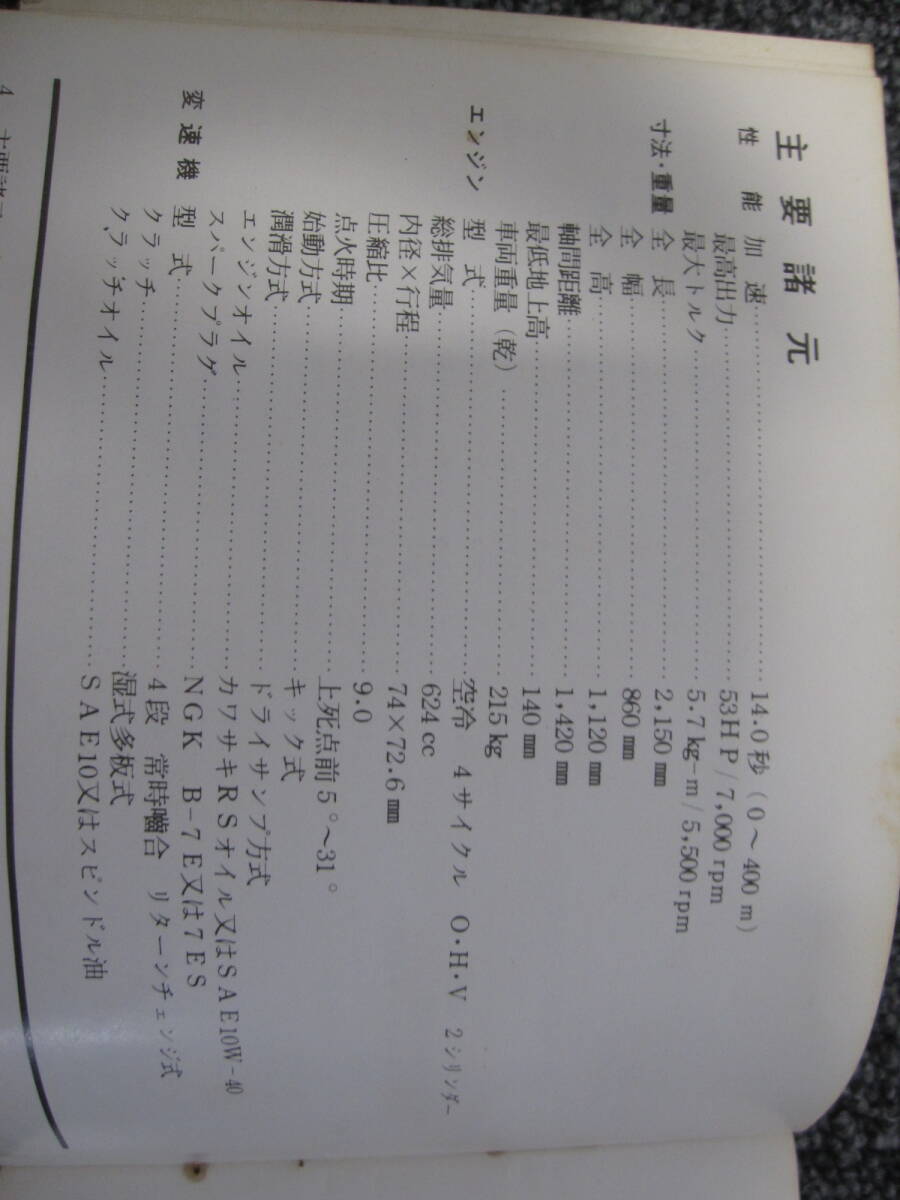 主要諸元
性能 加速……14.0秒（0～400m）
最高出力……53HP/7,000rpm
最大トルク……5.7kg-m/5,500rpm
寸法・重量 全長……2,150mm
全幅……860mm
全高……1,120mm
軸間距離……1,420mm
最低地上高……140mm
車両重量（乾）……215kg
エンジン 型式……空冷 4サイクル O・H・V 2シリンダー
総排気量……624cc
内径×行程……74×72.6mm
圧縮比……9.0
点火時期……上死点前5°～31°
始動方式……キック式
潤滑方式……ドライサンプ方式
エンジンオイル……カワサキRSオイル又はSAE10W-40
スパークプラグ……NGK B-7E又は7ES
変速機 型式……4段 常時嚙合 リターンチェンジ式
クラッチ……湿式多板式
クラッチオイル……SAE10又はスピンドル油
4